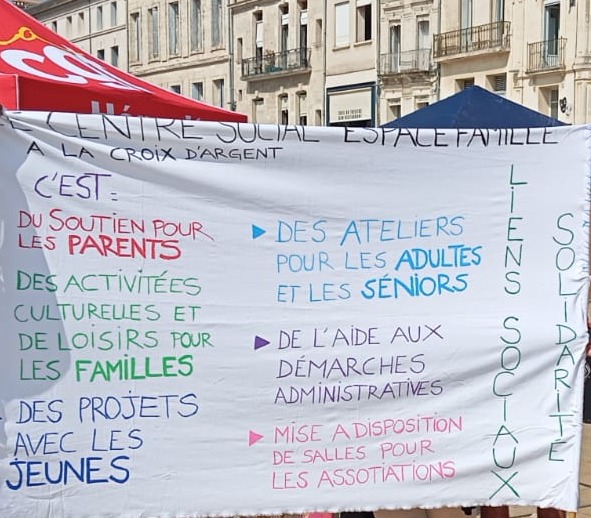 LE CENTRE SOCIAL ESPACE FAMILLE
A LA CROIX D'ARGENT
C'EST:
DU SOUTIEN POUR
LES PARENTS
DES ACTIVITÉES
CULTURELLES ET
DE LOISIRS POUR
LES FAMILLES
DES PROJETS
AVEC LES
JEUNES
DES ATELIERS
POUR LES ADULTES
ET LES SÉNIORS
DE L'AIDE AUX
DÉMARCHES
ADMINISTRATIVES
MISE A DISPOSITION
DE SALLES POUR
LES ASSOTIATIONS
LIENS SOCIAUX
SOLIDARITE